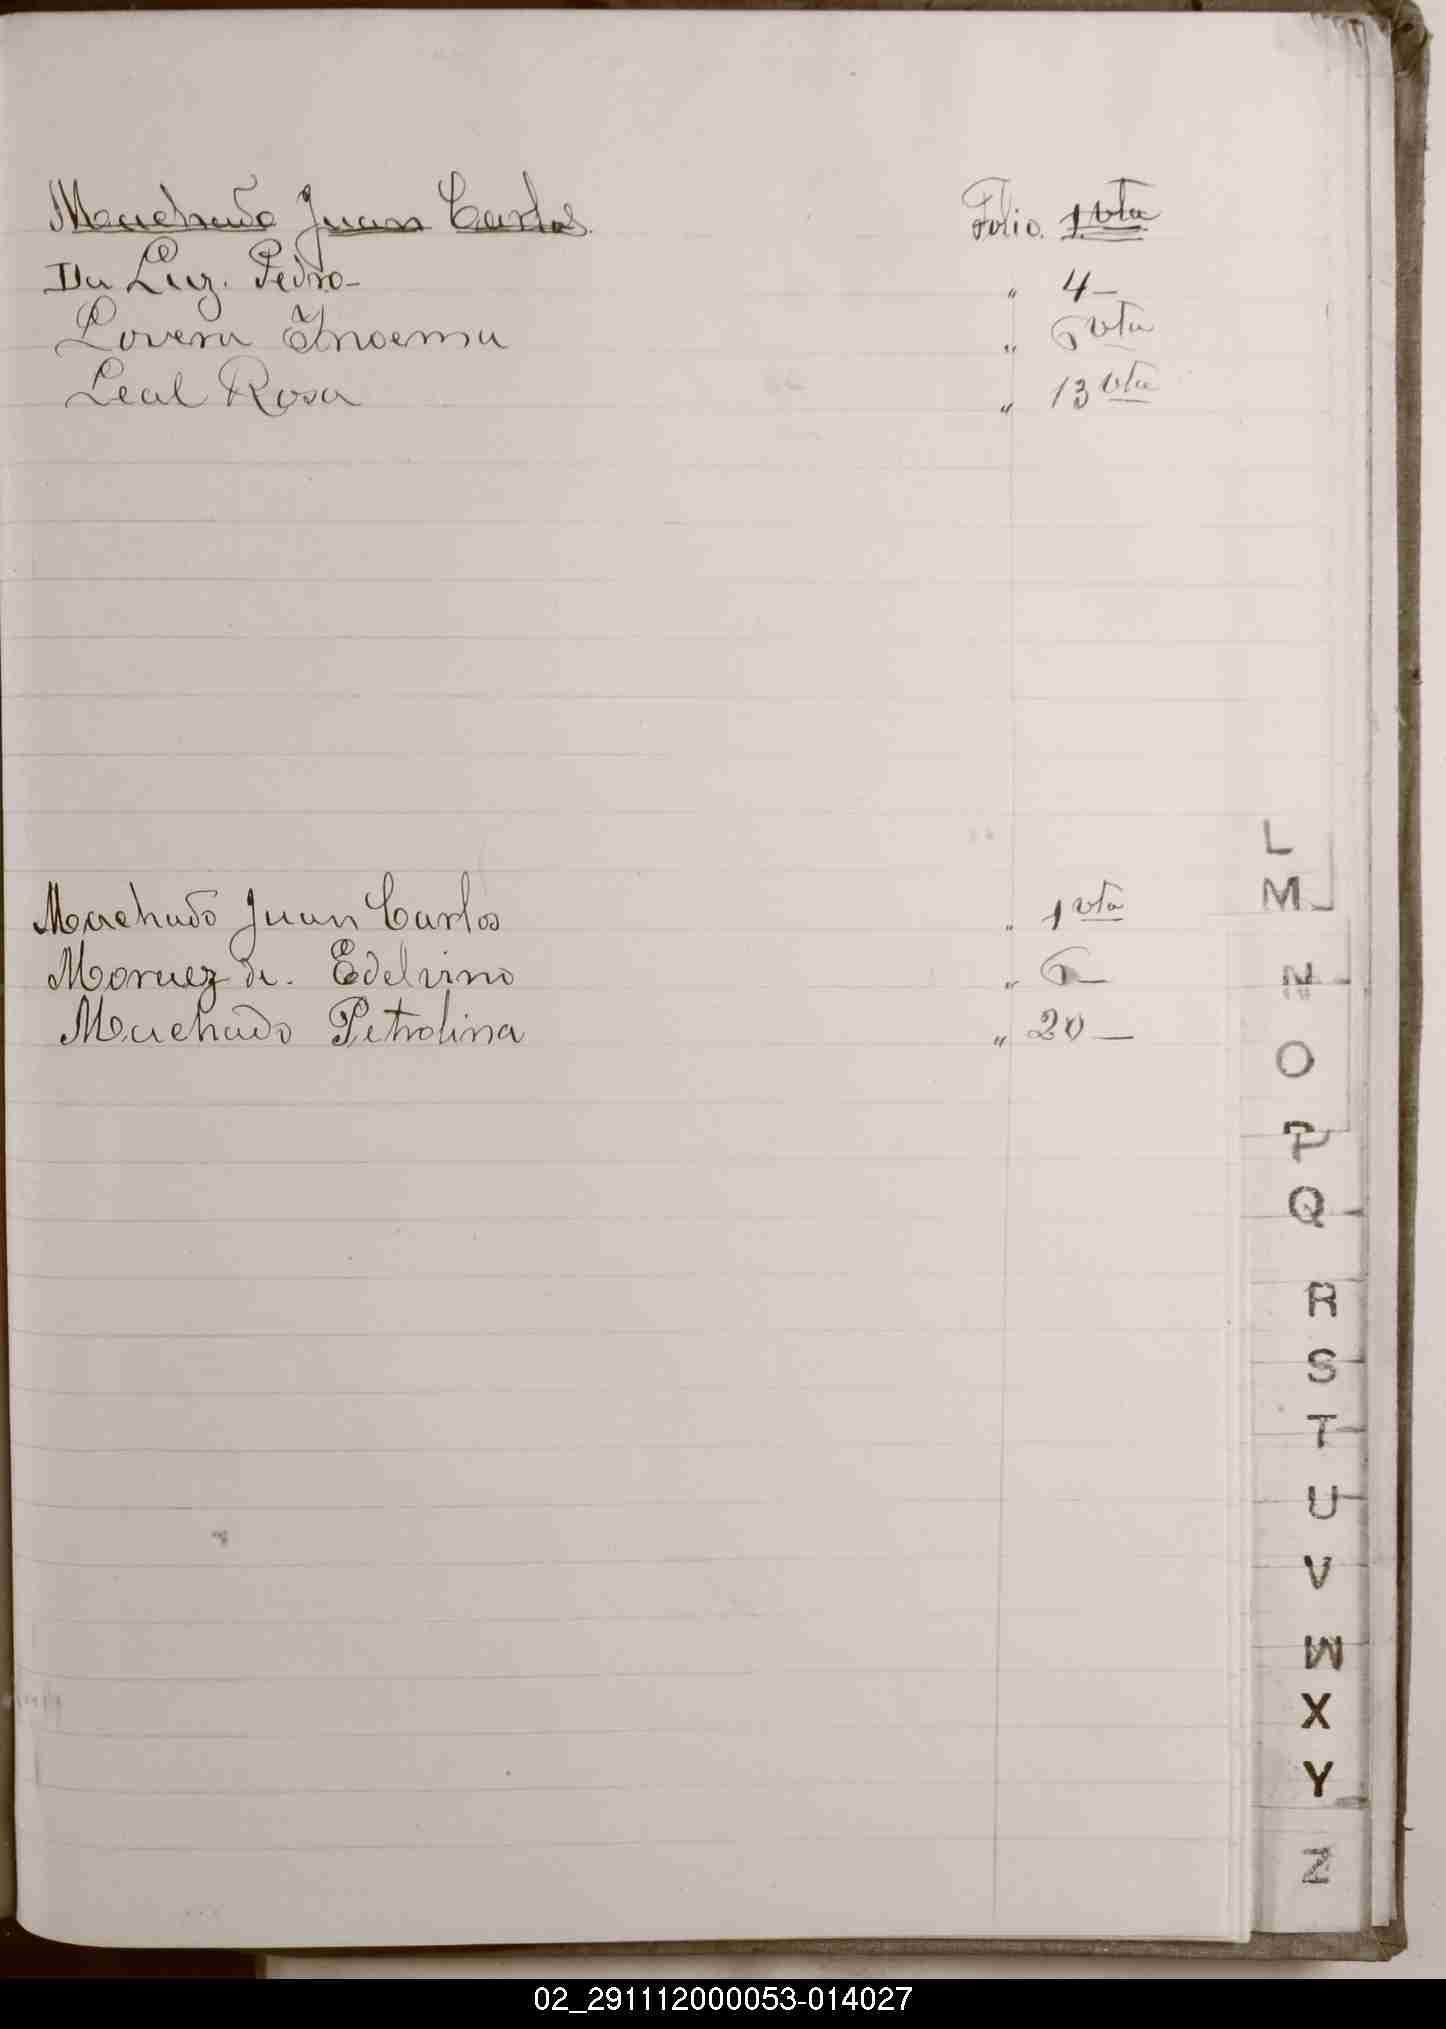 Machado Juan Carlos. Folio. 1 vta
Da Luz. Pedro- " 4-
Lovera Ynoema " 6 vta
Leal Rosa " 13 vta
L
M
Machado Juan Carlos " 1 vta
Moruez de. Edelvino " 6-
Machado Petrolina " 20-
N
O
P
Q
R
S
T
U
V
W
X
Y
Z
02_291112000053-014027